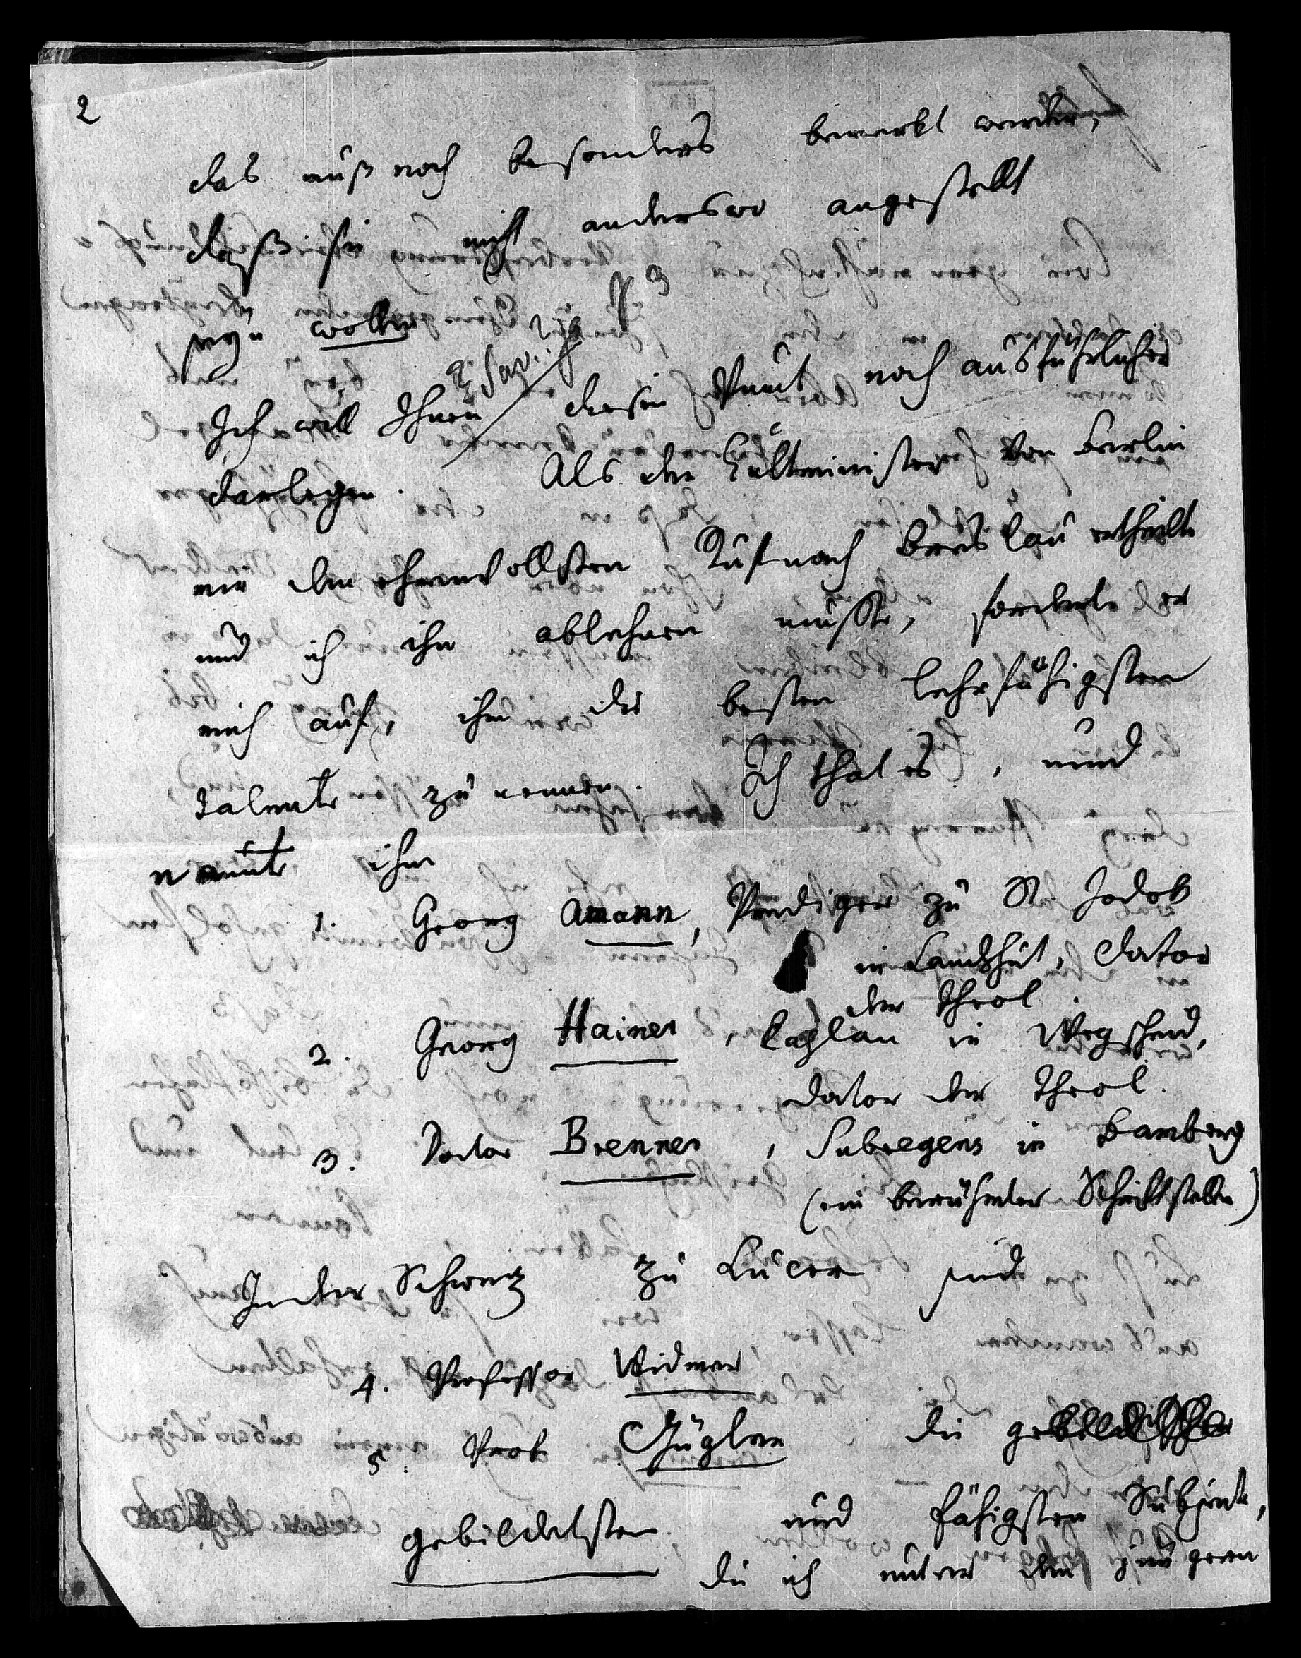 2
das muß noch besonders bemerkt werden,
daß sie nicht anderswo angestellt
seyn wollen
Ich will Ihnen diesen Punct noch ausführlicher
darlegen. Als der Cultminister von Berlin
mir den ehrenvollsten Ruf nach Breslau ertheilte
und ich ihn ablehnen mußte, forderte er
mich auf, ihm die besten lehrfähigsten
Talente zu nennen. Ich that es, und
nannte ihm
1. Georg Amann, Prediger zu St Jodok
in Landshut, Doctor
der Theol.
2. Georg Hainer, Caplan in Wegscheid,
Doctor der Theol.
3. Doctor Brenner, Subregens in Bamberg
(ein berühmter Schriftsteller)
In der Schweiz zu Lucern sind
4. Professor Widmer
5. Prof Gügler die
gebildetsten und fähigsten Subjecte,
die ich unter den jüngern